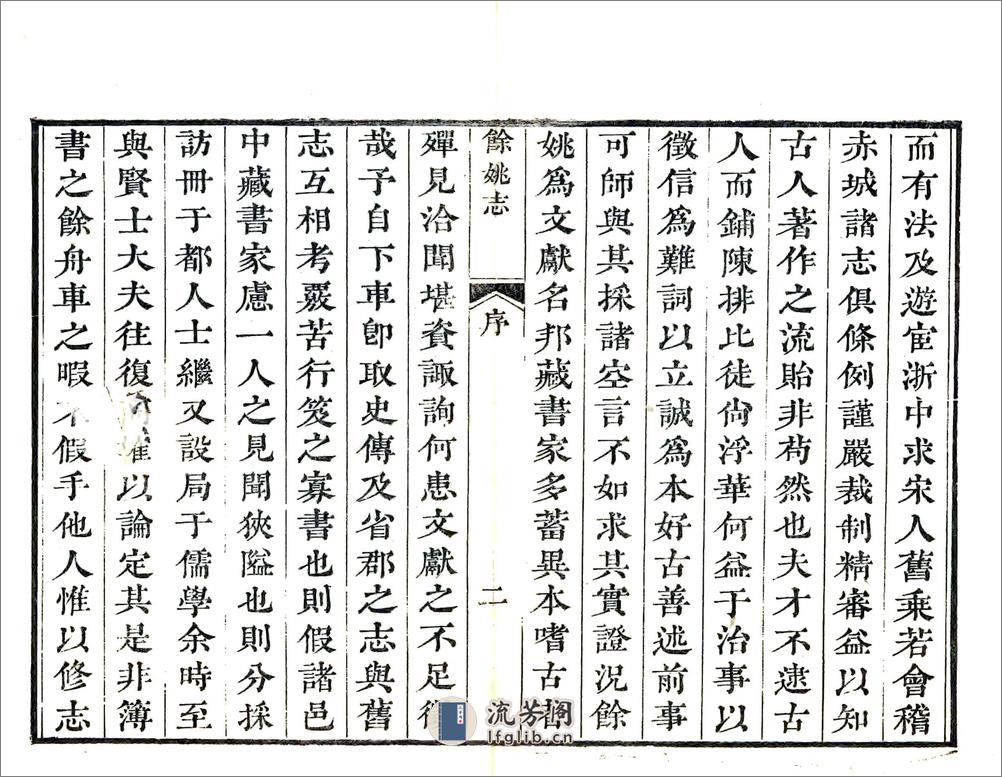 而有法及遊宦浙中求宋人舊乘若會稽
赤城諸志俱條例謹嚴裁制精審益以知
古人著作之流貽非苟然也夫才不逮古
人而鋪陳排比徒尙浮華何益于治事以
徵信爲難詞以立誠爲本好古善述前事
可師與其採諸空言不如求其實證況餘
姚爲文獻名邦藏書家多蓄異本嗜古
餘姚志
序
二
殫見洽聞堪資諏詢何患文獻之不足
哉予自下車卽取史傳及省郡之志與舊
志互相考覈苦行笈之寡書也則假諸邑
中藏書家慮一人之見聞狹隘也則分採
訪冊于都人士繼又設局于儒學余時至
與賢士大夫往復 以論定其是非簿
書之餘舟車之暇不假手他人惟以修志
流芳阁
lfglib.cn